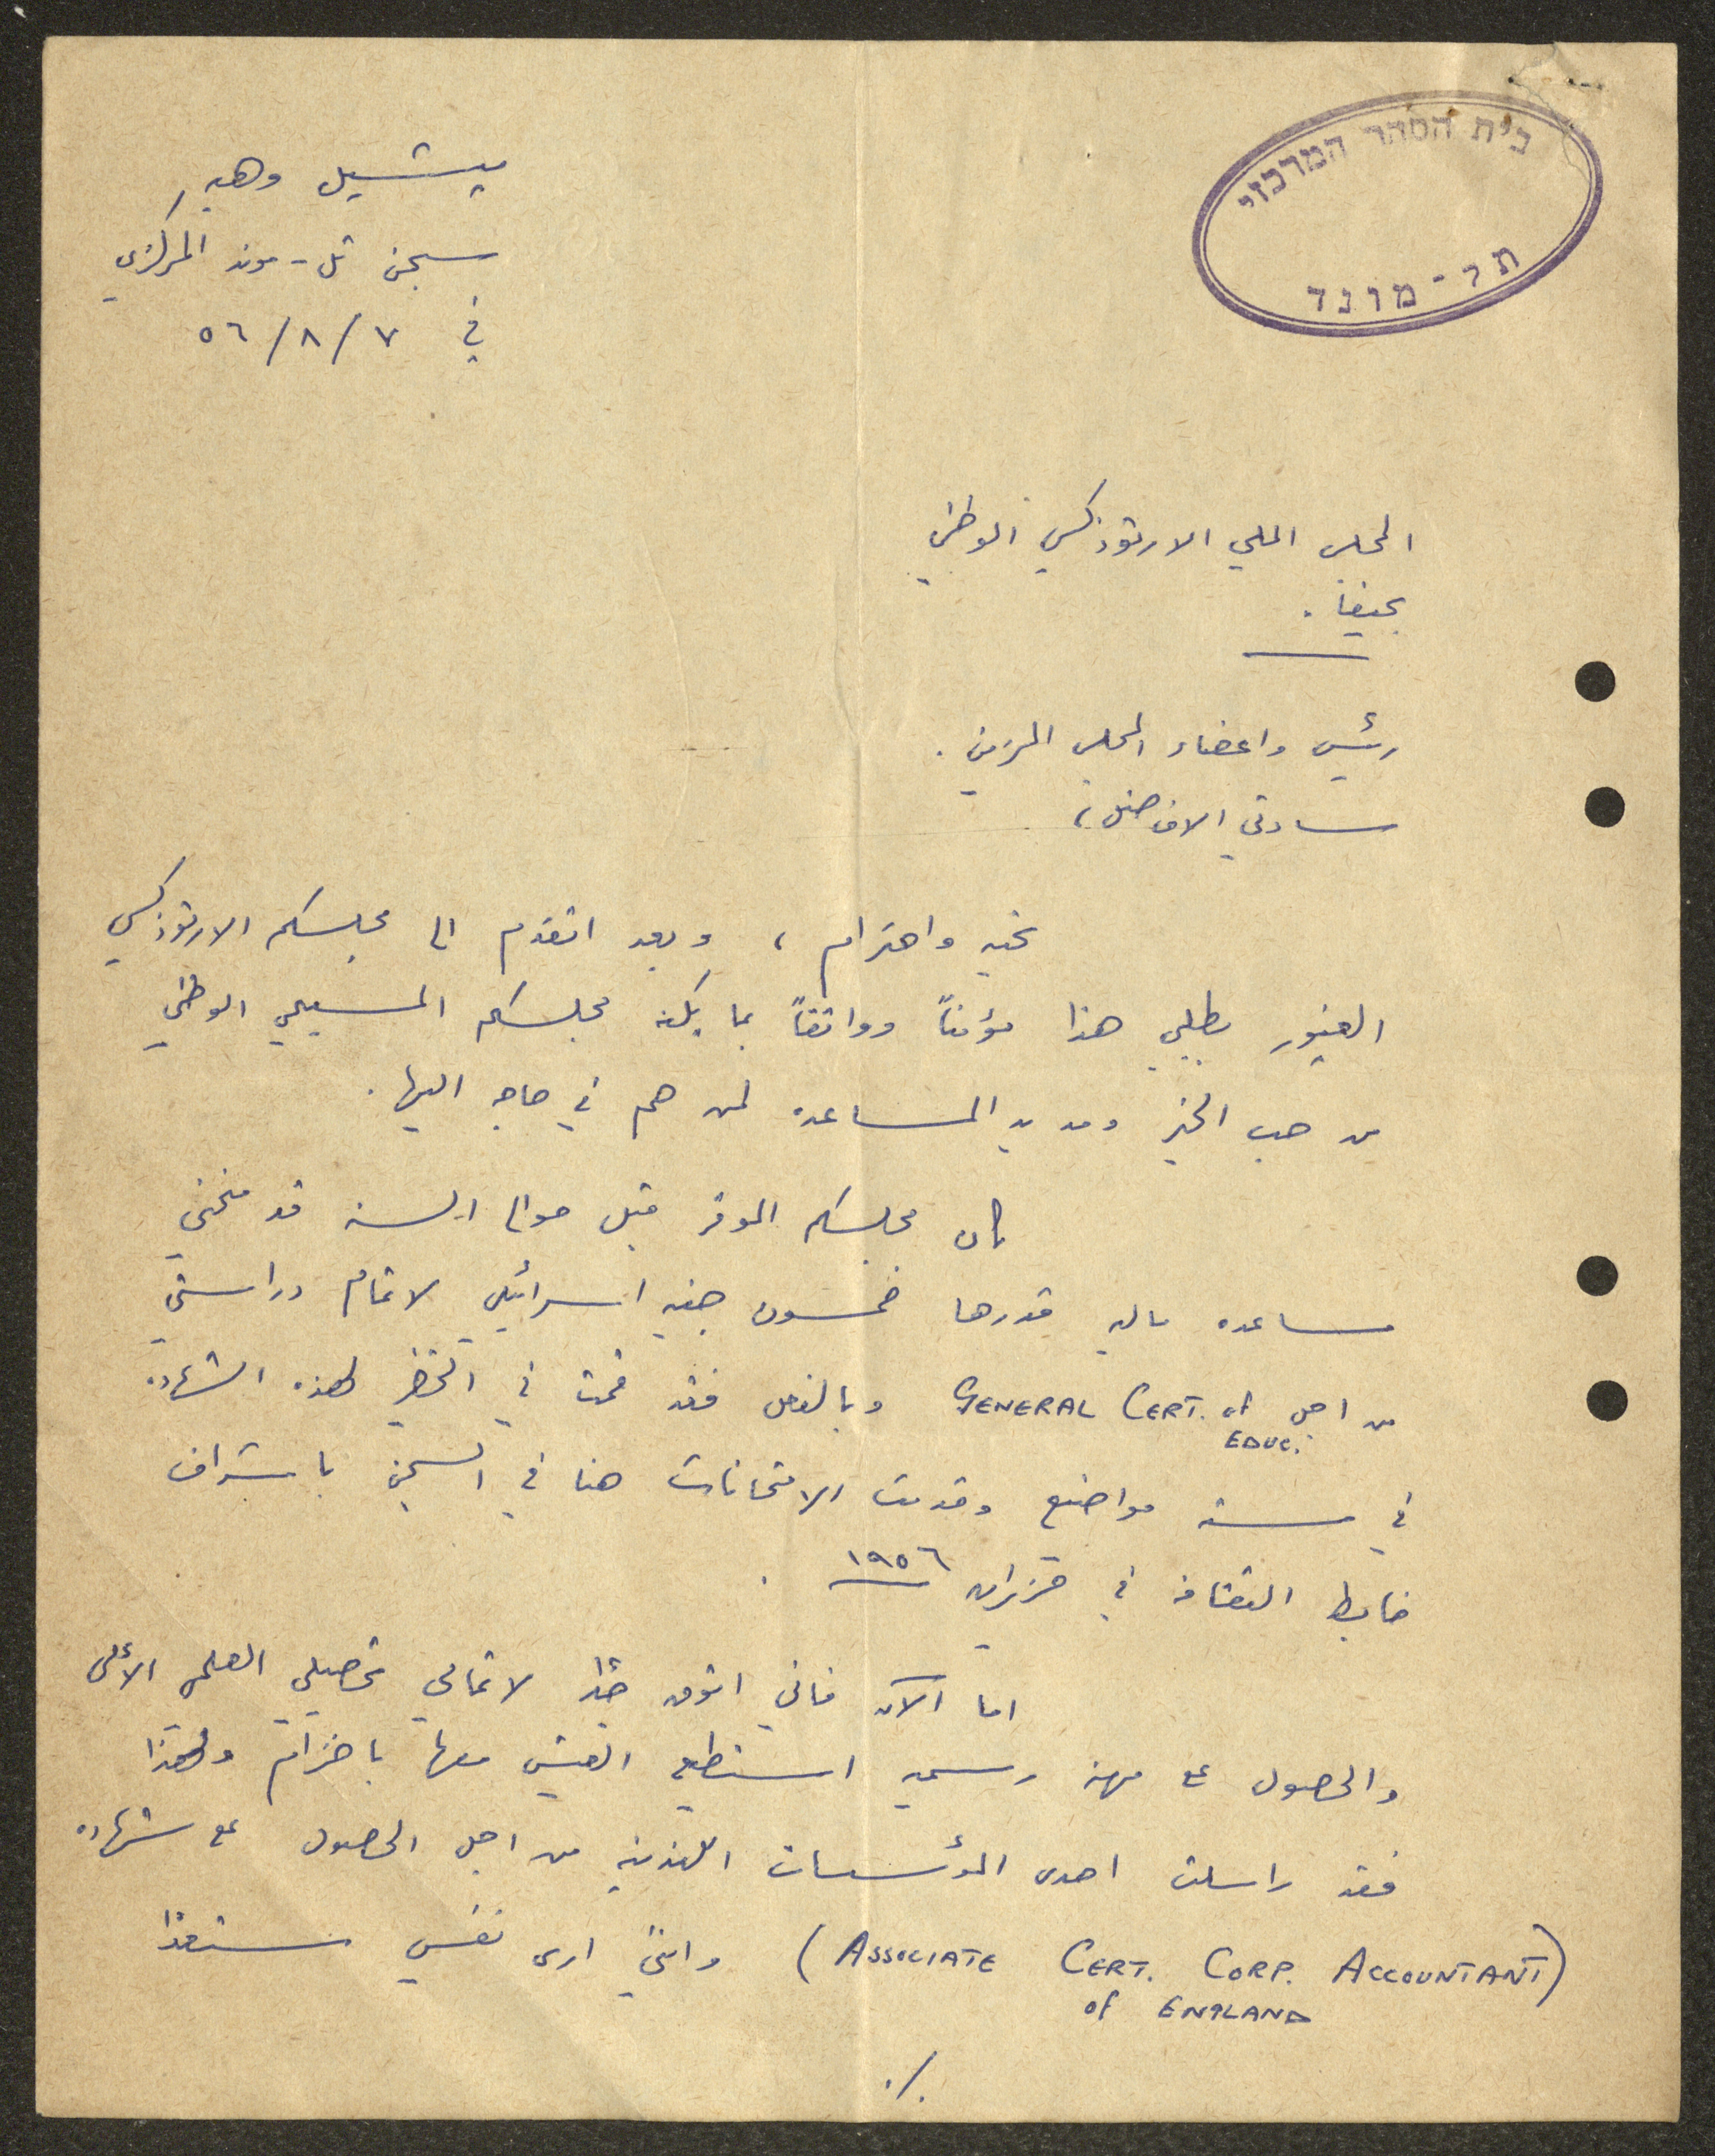 בית הסהר המרכזי
תל-מונד
ميشيل وهبه
سجن تل-موند المركزي
في ٧/٨/٥٦
المجلس الملي الارثوذكسي الوطني
بحيفا.
رئيس واعضاء المجلس
سادتي الافاضل،
تحيه واحترام، وبعد اتقدم الى مجلسكم الارثوذكسي
الغيور بطلبي هذا مؤمناً وواثقاً بما يكنه مجلسكم المسيحي الوطني
من حب الخير ومد يد المساعده لمن هم في حاجه اليها.
كان مجلسكم الموقر قبل حوالي السنه قد منحني
مساعده ماليه قدرها خمسون جنيه اسرائيلي لاتمام دراستي
من اجل GENERAL CERT. of EDUC. وبالفعل فقد قمت في التحضير لهذه الشهاده
في سته مواضيع وقدمت الامتحانات هنا في السجن باشراف
ضابط الثقافه في حزيران ١٩٥٦.
اما الآن فاني اتوق جداً لاتمامي تحصيلي العلمي الأعلى
والحصول على مهنه رسميه استطيع العيش معها باحترام ولهذا
فقد راسلت احدى المؤسسات اللندنيه من اجل الحصول على شهاده
(ASSOCIATE CERT. CORP. ACCOUNTANT of ENGLAND) وانني ارى نفسي مستعداً
./.